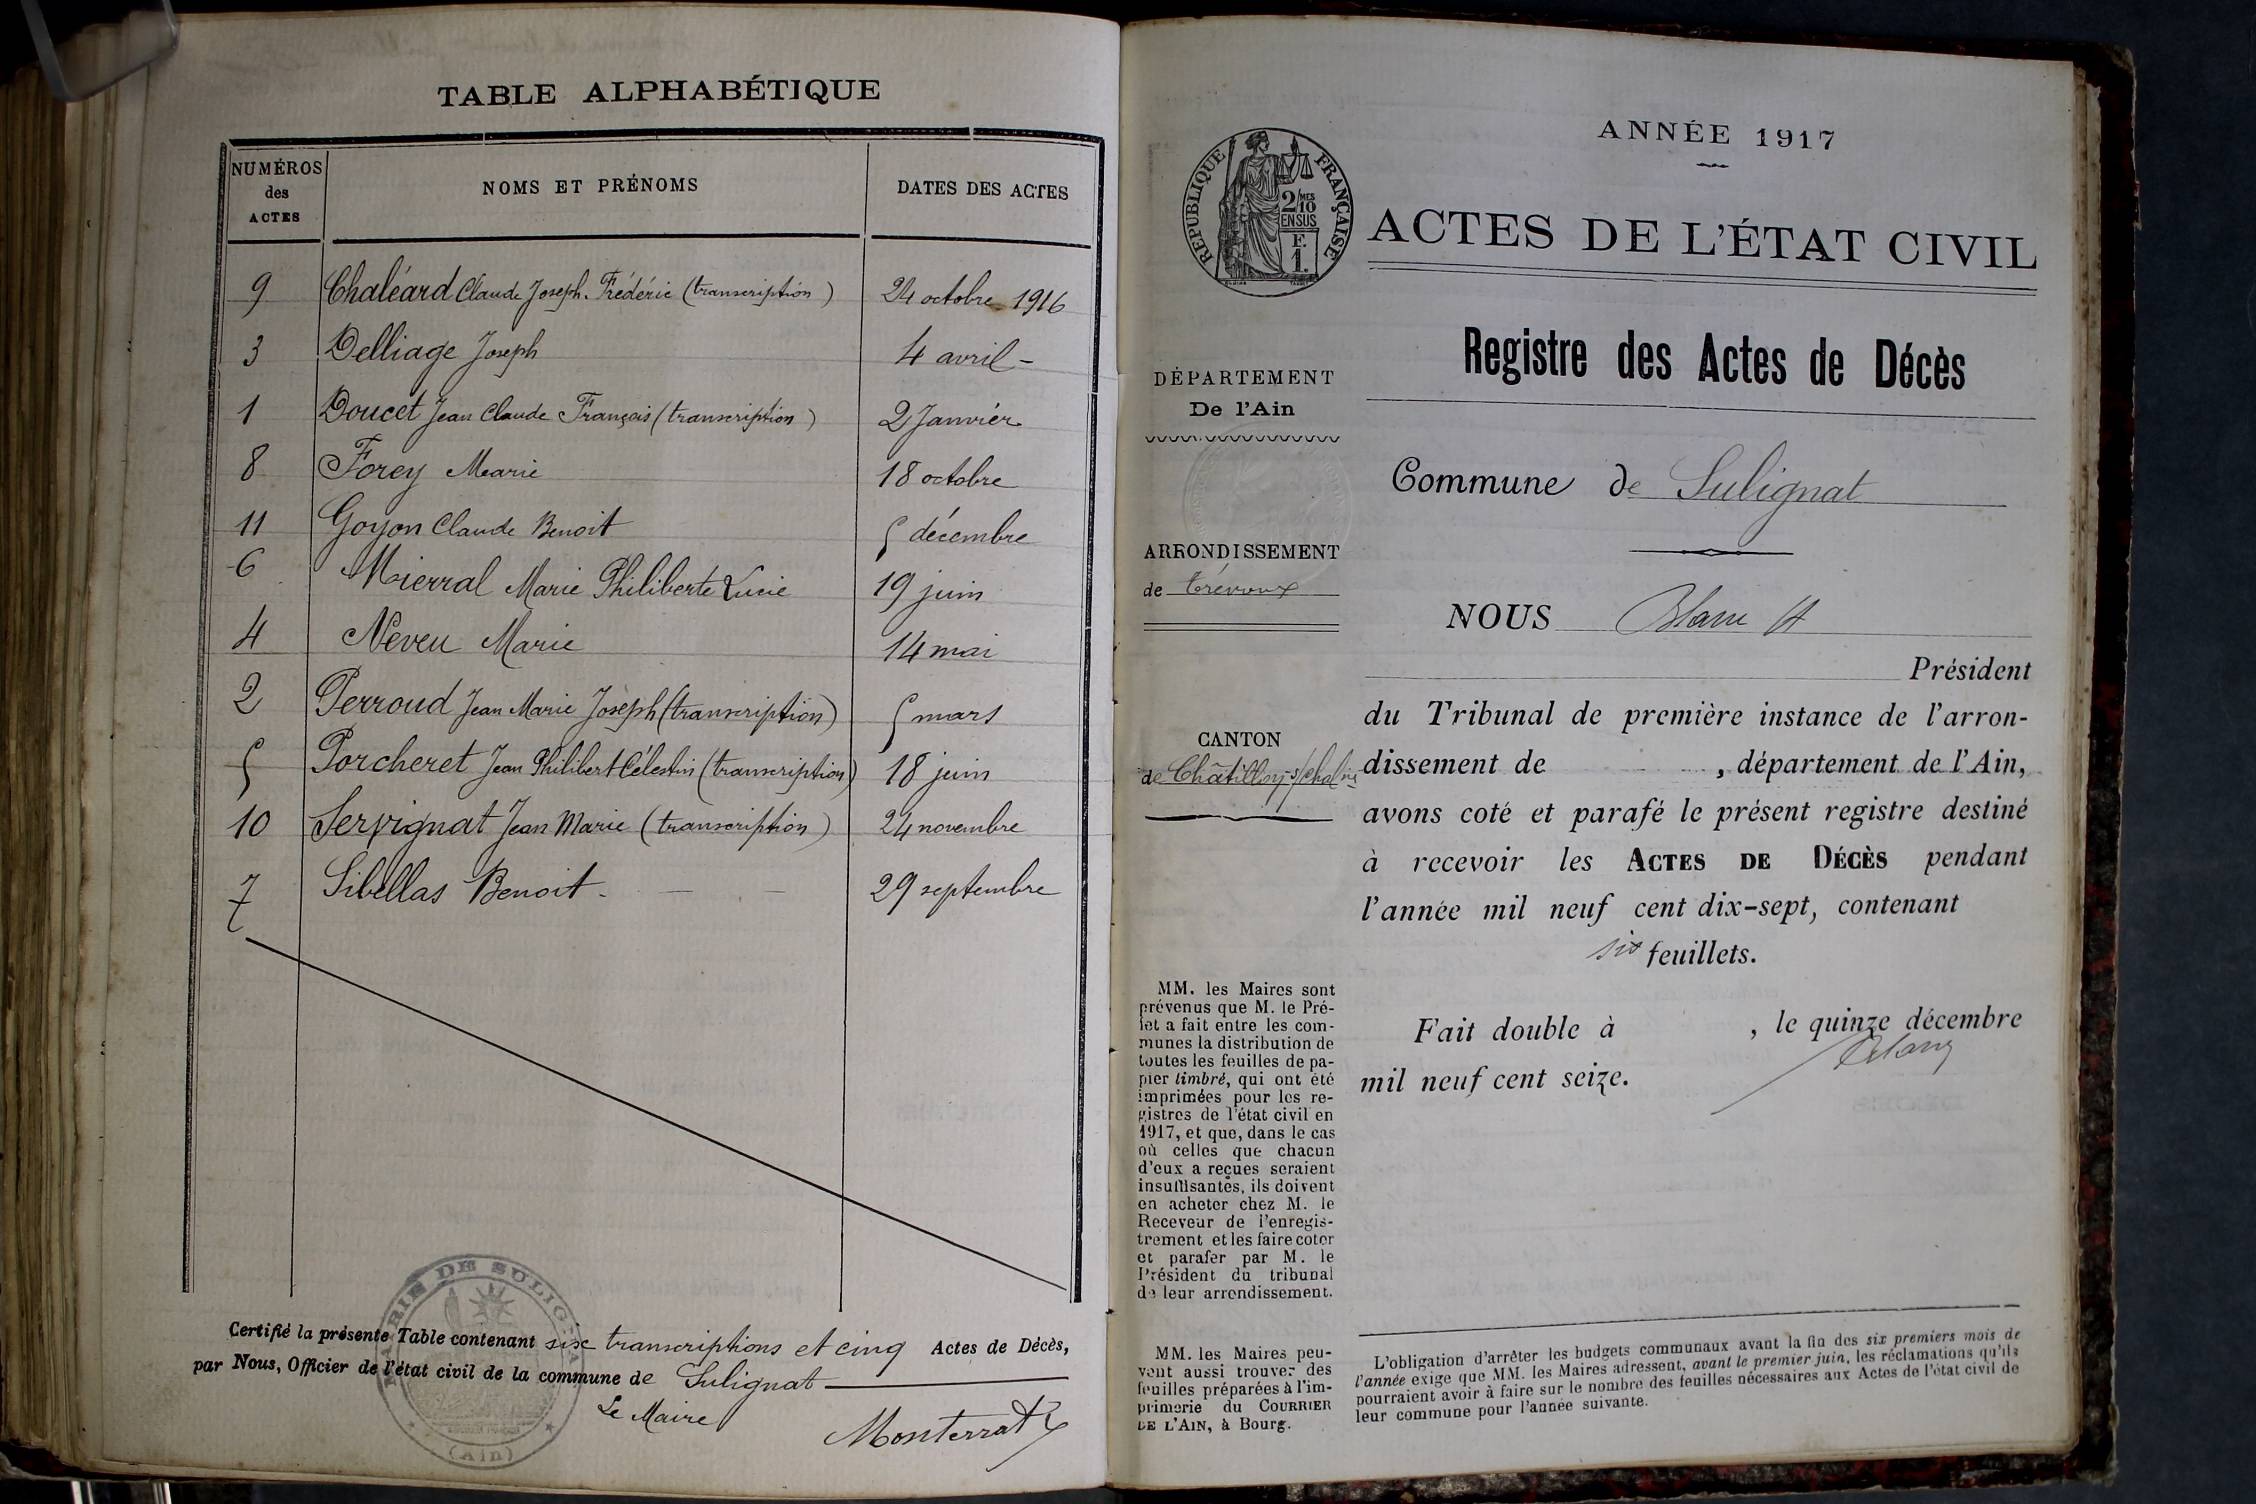 TABLE ALPHABÉTIQUE
NUMÉROS des ACTES NOMS ET PRÉNOMS DATES DES ACTES
9 Chaléard Claude Joseph Frédéric (transcription) 24 octobre 1916
3 Delliage Joseph 4 avril -
1 Doucet Jean Claude François (transcription) 2 Janvier
8 Forey Marie 18 octobre
11 Goyon Claude Benoit 5 décembre
6 Mierral Marie Philiberte Lucie 19 juin
4 Neveu Marie 14 mai
2 Perroud Jean Marie Joseph (transcription) 5 mars
5 Porcheret Jean Philibert Célestin (transcription) 18 juin
10 Servignat Jean Marie (transcription) 24 novembre
7 Sibellas Benoit - — — 29 septembre
Certifié la présente Table contenant six transcriptions et cinq Actes de Décès,
par Nous, Officier de l'état civil de la commune de Sulignat
Le Maire
Monterrat
MAIRIE DE SULIGNAT
(Ain)
ANNÉE 1917
RÉPUBLIQUE FRANÇAISE
2/10 MES
EN SUS
F.
1.
ACTES DE L'ÉTAT CIVIL
Registre des Actes de Décès
DÉPARTEMENT
De l'Ain
Commune de Sulignat
ARRONDISSEMENT
de Trévoux
NOUS Blanc A
Président
du Tribunal de première instance de l'arron-
CANTON
de Châtillon s/ Chalne
dissement de , département de l'Ain,
avons coté et parafé le présent registre destiné
à recevoir les ACTES DE DÉCÈS pendant
l'année mil neuf cent dix-sept, contenant
six feuillets.
Fait double à , le quinze décembre
mil neuf cent seize.
MM. les Maires sont
prévenus que M. le Pré-
fet a fait entre les com-
munes la distribution de
toutes les feuilles de pa-
pier timbré, qui ont été
imprimées pour les re-
gistres de l'état civil en
1917, et que, dans le cas
où celles que chacun
d'eux a reçues seraient
insuffisantes, ils doivent
en acheter chez M. le
Receveur de l'enregis-
trement et les faire coter
et parafer par M. le
Président du tribunal
de leur arrondissement.
MM. les Maires peu-
vent aussi trouver des
feuilles préparées à l'im-
primerie du COURRIER
DE L'AIN, à Bourg.
L'obligation d'arrêter les budgets communaux avant la fin des six premiers mois de
l'année exige que MM. les Maires adressent, avant le premier juin, les réclamations qu'ils
pourraient avoir à faire sur le nombre des feuilles nécessaires aux Actes de l'état civil de
leur commune pour l'année suivante.